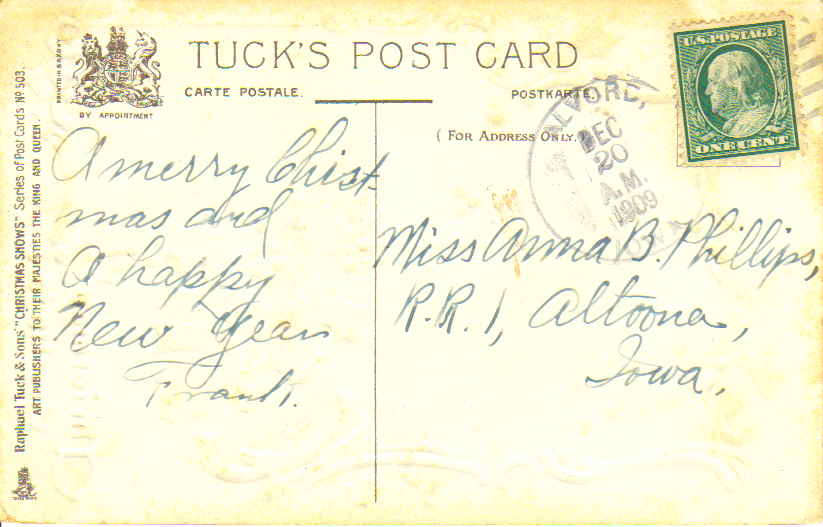 TUCK'S POST CARD
CARTE POSTALE.
POSTKARTE
BY APPOINTMENT
( FOR ADDRESS ONLY. )
Raphael Tuck & Sons' "CHRISTMAS SNOWS" Series of Post Cards No 503.
ART PUBLISHERS TO THEIR MAJESTIES THE KING AND QUEEN.
U.S. POSTAGE
ONE CENT
ALVORD,
DEC
20
A.M.
1909
IOWA
A merry Christ-
mas and
A happy
New Year
Frank.
Miss Anna B. Phillips,
R.R. 1, Altoona,
Iowa,